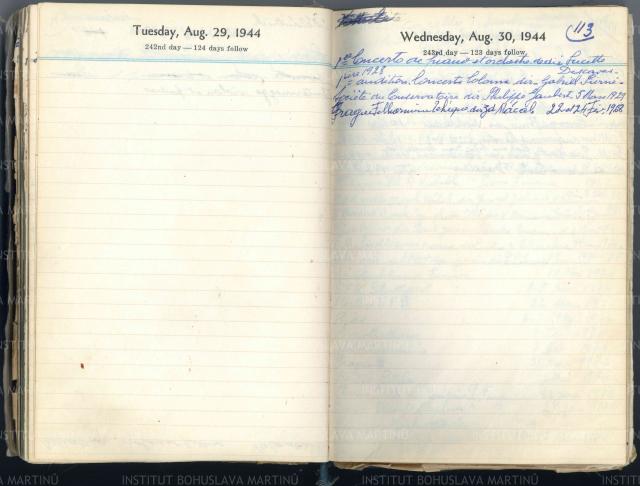 Tuesday, Aug. 29, 1944
242nd day — 124 days follow
Wednesday, Aug. 30, 1944
113
243rd day — 123 days follow
1er Concerto de piano et orchestre dédié Lucette
Descaves
1928
1e audition Concerts Colonne dir. Gabriel Pierné
Société du Conservatoire dir Philippe Gaubert 5 Mars 1929
Prague Filharmonie Tchèque 22 et 24 Fév. 1968
INSTITUT BOHUSLAVA MARTINŮ
INSTITUT BOHUSLAVA MARTINŮ